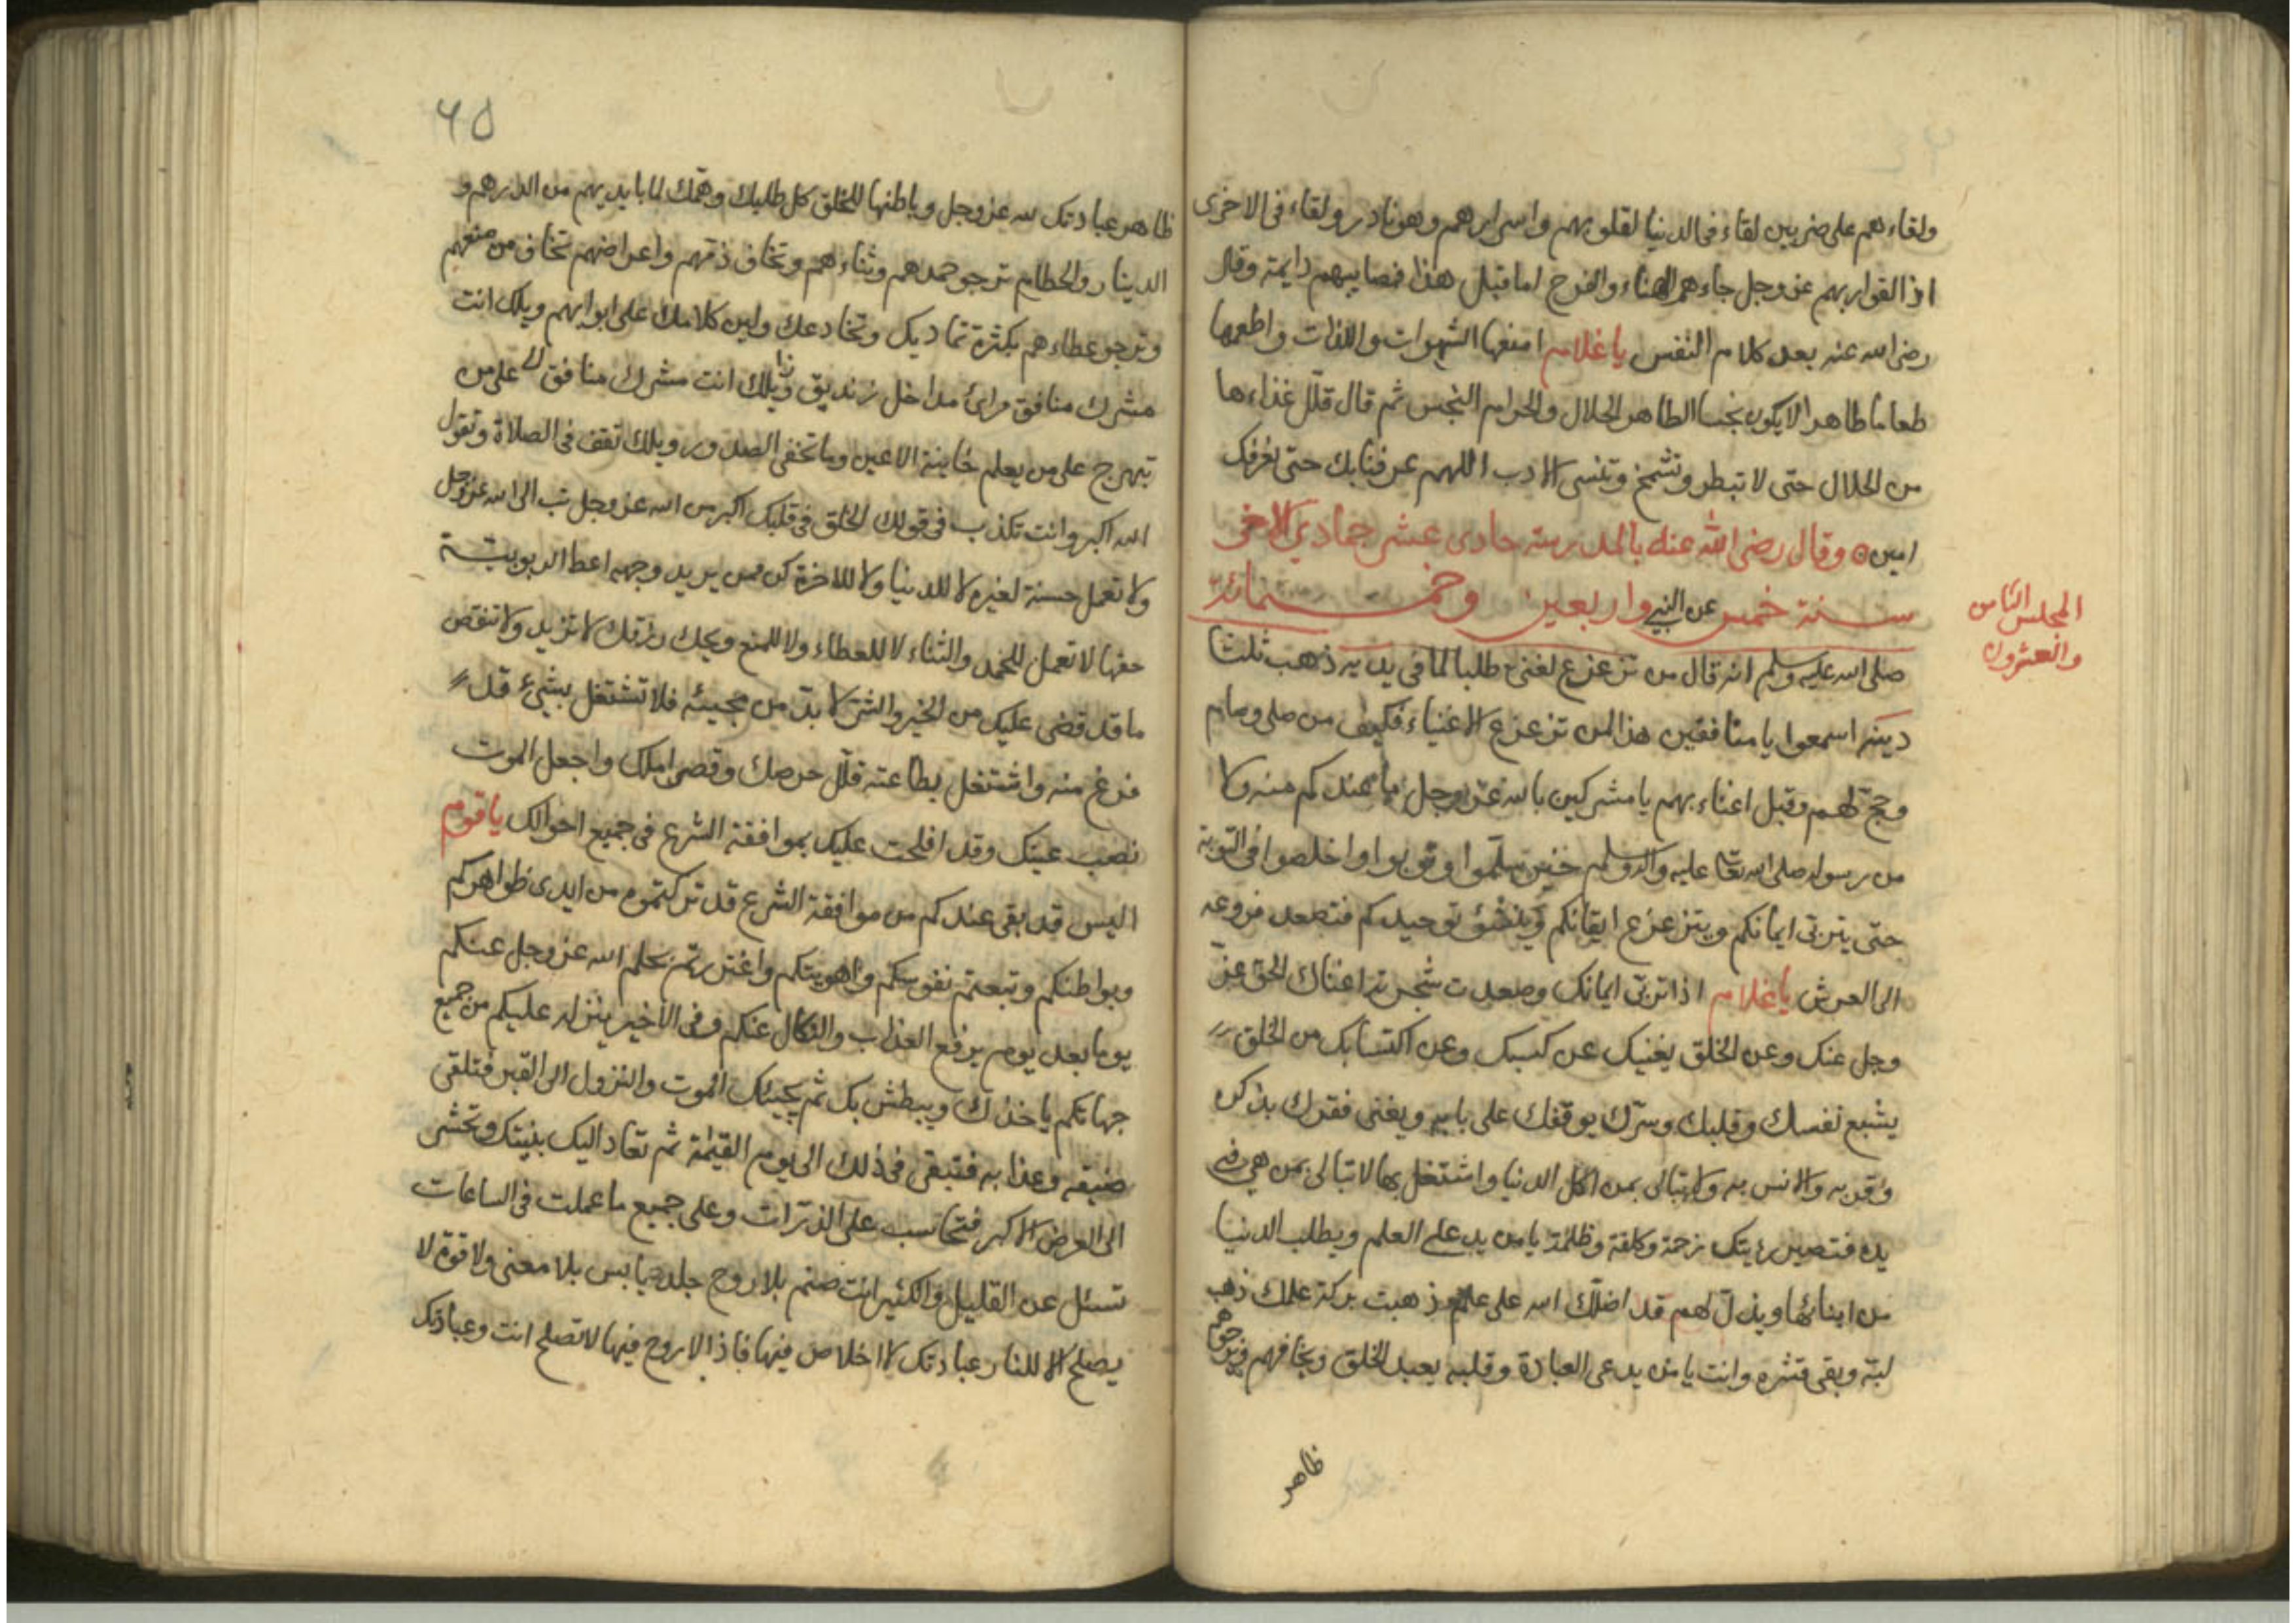 ولقاءهم على ضربين لقاء فى الدنيا لقلوبهم واسرارهم وهو نادر ولقاء فى الاخرى
اذا لقوا ربهم عز وجل جاءهم الهناء والفرح اما قبل هذا فمصايبهم دايمة وقال
رضى الله عنه بعد كلام النفس يا غلام امنعها الشهوات واللذات واطعمها
طعاما طاهرا لا يكون نجسا الطاهر الحلال والحرام النجس ثم قال قلّل غذاءها
من الحلال حتى لا تبطر وتشمخ وتنسى الادب اللهم عرفنا بك حتى نعرفك
امين وقال رضى الله عنه بالمدرسة حادى عشر جمادي الاخرى
سنة خمس واربعين وخمسمائة عن النبي
المجلس الثامن
والعشرون
صلى الله عليه وسلم انه قال من تزعزع لغنى طلبا لما فى يديه ذهب ثلثا
دينه اسمعوا يا منافقين هذا لمن تزعزع للاغنياء فكيف من صلى وصام
وحج لهم وقبل اعتاءبهم يا مشركين بالله عز وجل ما عندكم منه ولا
من رسوله صلى الله تعا عليه واله وسلم خبر سلّموا وتوبوا واخلصوا فى التوبة
حتى يتربى ايمانكم ويتزعزع ايقانكم وينشئ توحيدكم فتصعد فروعه
الى العرش يا غلام اذا تربى ايمانك وصعدت شجرته اغناك الحق عزّ
وجل عنك وعن الخلق يغنيك عن كسبك وعن اكتسابك من الخلق
يشبع نفسك وقلبك وسرّك يوقفك على بابه ويغنى فقرك بذكره
وقربه والانس به ولا تبالى بمن اكل الدنيا واشتغل بها لا تبالى بمن هي فى
يده فتصير رئيتك زحمة وكلفة وظلمة يا من يدعى العلم ويطلب الدنيا
من ابنائها ويذلّ لهم قد اضلّك الله على علم ذهبت بركة علمك ذهب
لبّه وبقى قشره وانت يا من يدعى العبادة وقلبه يعبد الخلق ويخافهم ويرجوهم
ظاهر
٦٥
ظاهر عبادتك لله عز وجل وباطنها للخلق كل طلبك وهمّك لما بايديهم من الدرهم و
الدينار والحطام ترجو حمدهم وثناءهم وتخاف ذمّهم واعراضهم تخاف من منعهم
وترجو عطاءهم بكثرة تماديك وتخادعك ولين كلامك على ابوابهم ويلك انت
مشرك منافق مرائ مداخل زنديق ويلك انت مشرك منافق على من
تبهرج على من يعلم خاينة الاعين وما تخفى الصدور ويلك تقف فى الصلاة وتقول
الله اكبر وانت تكذب فى قولك الخلق فى قلبك اكبر من الله عز وجل تب الى الله عز وجل
ولا تعمل حسنة لغيره لا للدنيا ولا للاخرة كن ممن يريد وجهه اعط الربوبيتة
حقها لا تعمل للحمد والثناء لا للعطاء ولا للمنع ويحك رزقك لا تزيد ولا تنقص
ما قد قضى عليك من الخير والشر لا بدّ من مجيئه فلا تشتغل بشيئ قد
فرغ منه واشتغل بطاعته قلّل حرصك وقصر املك واجعل الموت
نصب عينك وقد افلحت عليك بموافقة الشرع فى جميع احوالك يا قوم
اليس قد بقى عندكم من موافقة الشرع قد تركتموه من ايدى ظواهركم
وبواطنكم وتبعتم نفوسكم واهويتكم واغتررتم بحلم الله عز وجل عنكم
يوما بعد يوم يرفع العذاب والنكال عنكم وفى الاخير ينزله عليكم من جميع
جهاتكم ياخذك ويبطش بك ثم يجيئك الموت والنزول الى القبر فتلقى
ضيقه وعذابه فتبقى فى ذلك الى يوم القيٰمة ثم تعاد اليك بنيتك وتحشر
الى العرض الاكبر فتحاسب على الذرّات وعلى جميع ما عملت فى الساعات
تسئل عن القليل والكثير انت صنم بلا روح جلد يابس بلا معنى ولا قوة لا
يصلح الا للنار عبادتك لا اخلاص فيها فاذا لا روح فيها لا تصلح انت وعبادتك